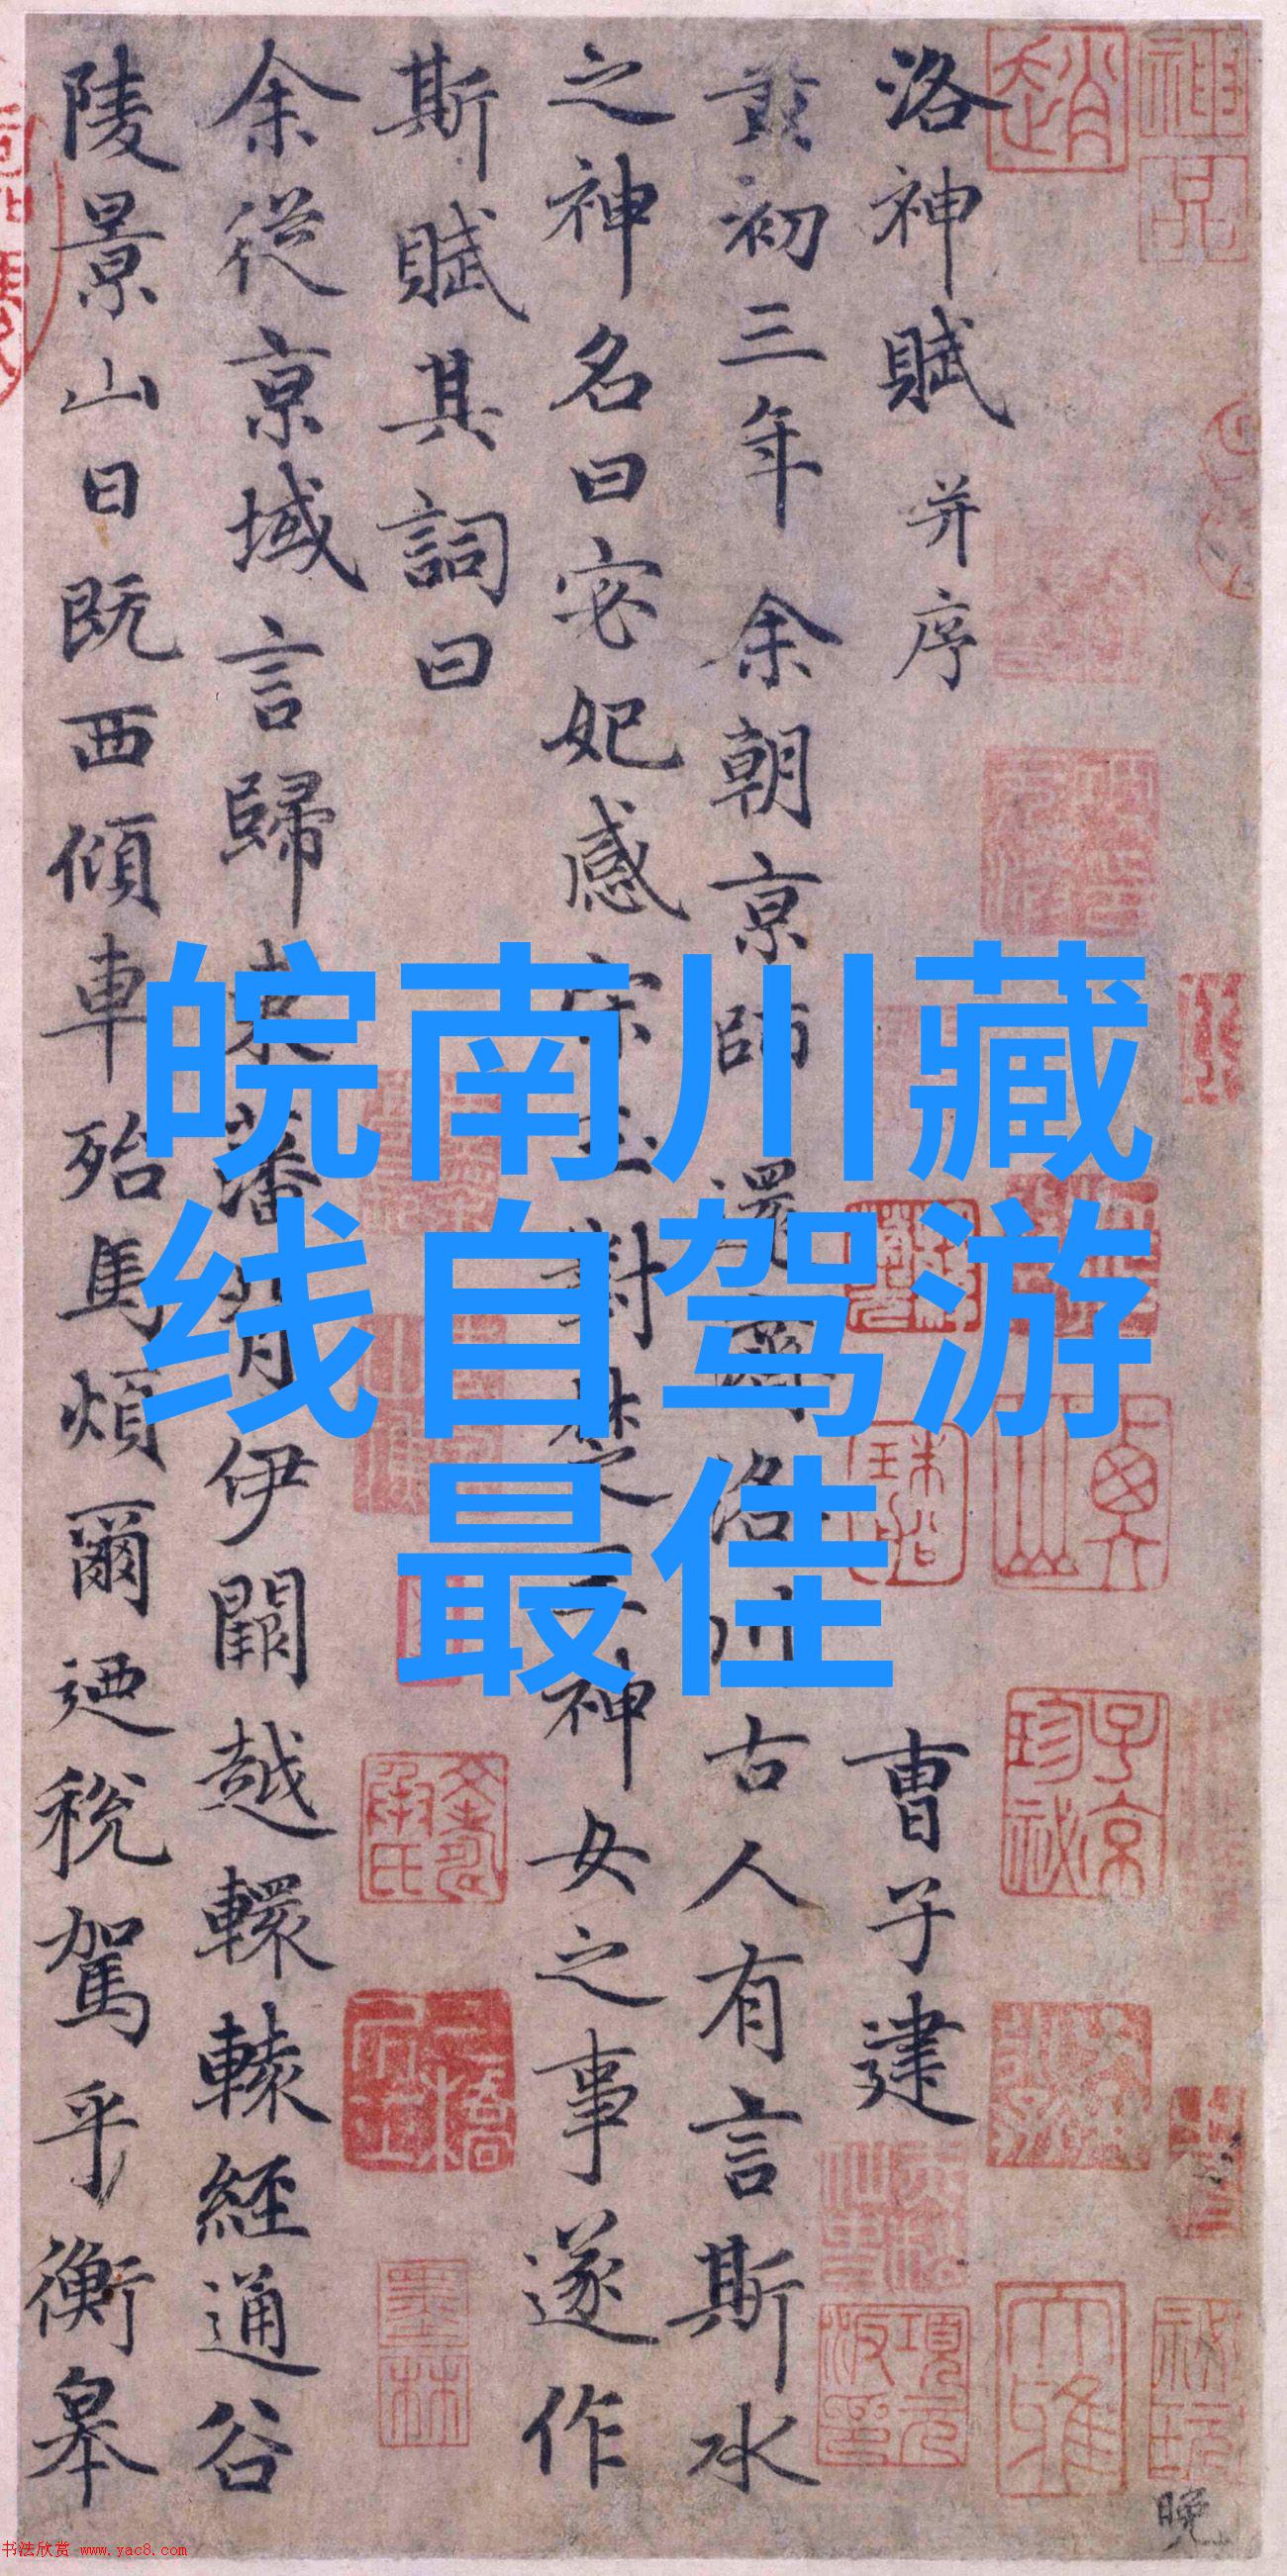 洛神賦 并序 曹子建
黄初三年余朝京師還濟洛川古人有言斯水
之神名曰宓妃感宋玉對楚王神女之事遂作
斯賦其詞曰
余從京域言歸東藩背伊闕越轘轅經通谷
陵景山日既西傾車殆馬煩爾迺稅駕乎衡皋
皖南川藏
线自驾游
最佳
晚
书法欣赏 www.yac8.com